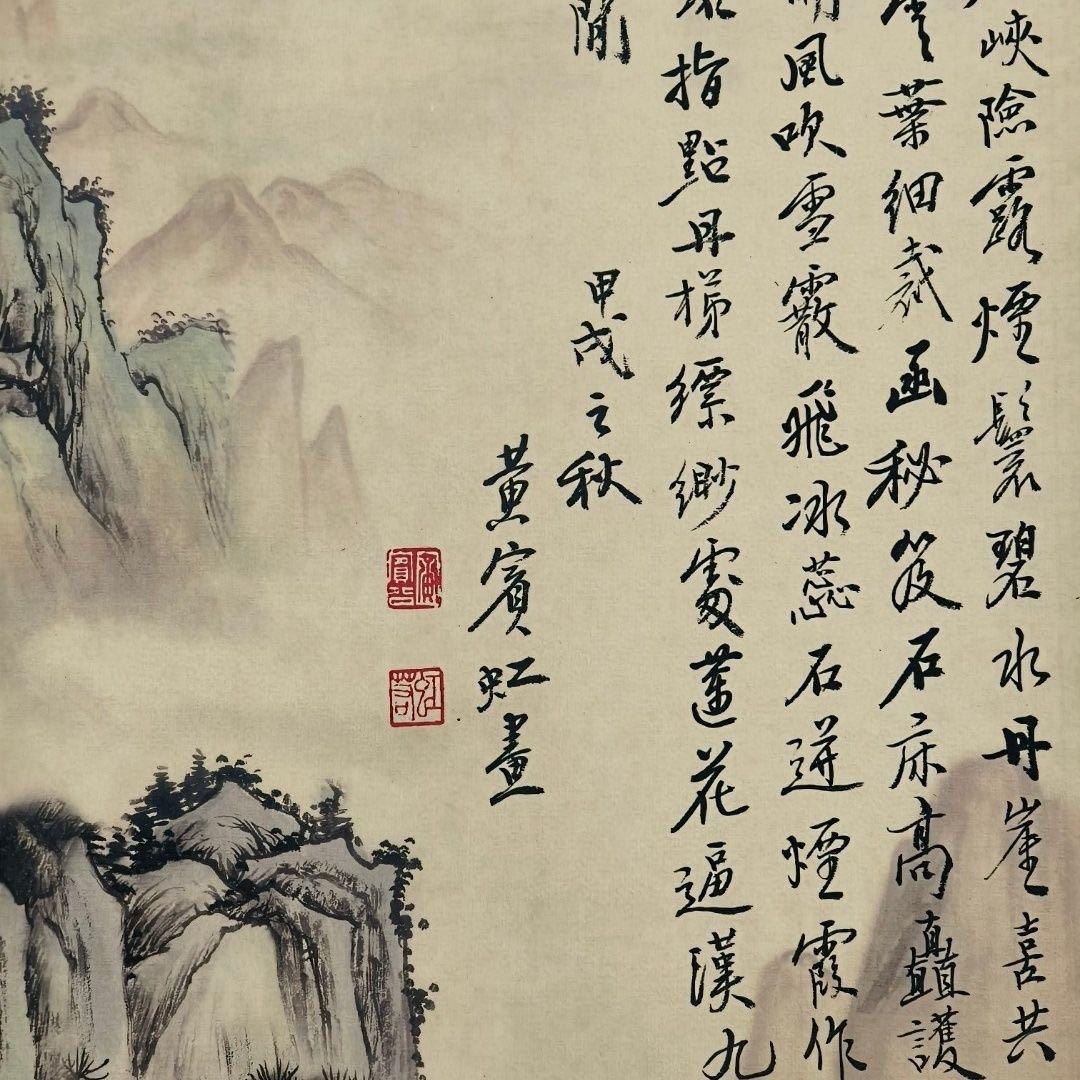 峽險露煙鬟碧水丹崖喜共
葉細裁函秘笈石床高巔護
風吹雪霰飛冰蕊石迸煙霞作
指點丹梯縹緲處蓮花逼漢九
閒
甲戌之秋
黃賓虹畫
黃賓虹